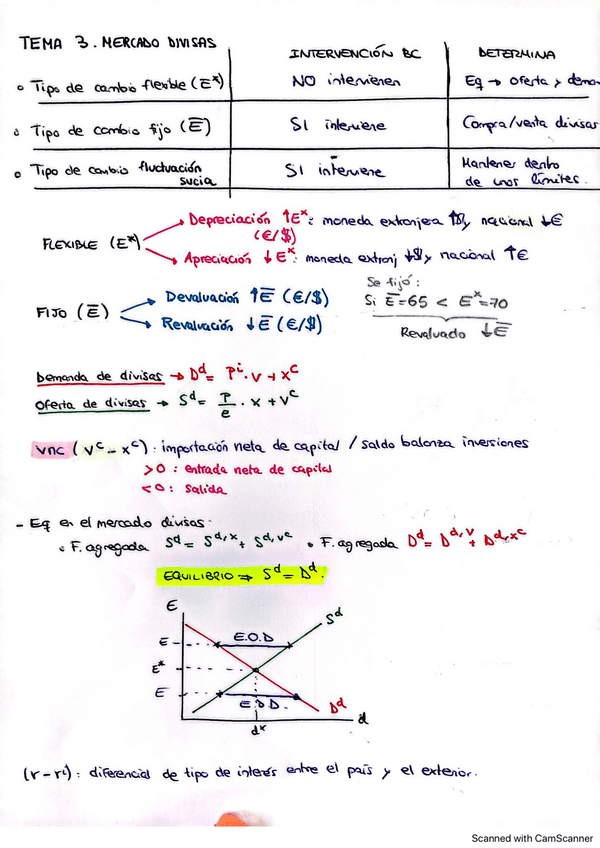 TEMA 3. MERCADO DIVISAS
INTERVENCIÓN BC DETERMINA
o Tipo de cambio flexible (E*) NO intervienen Eq → oferta y dema
o Tipo de cambio fijo (E̅) SI interviene Compra/venta divisas
o Tipo de cambio fluctuación sucia SI interviene Mantener dentro de unos límites.
FLEXIBLE (E*)
Depreciación ↑E*: moneda extranjera ↑$ y nacional ↓€
(€/$)
Apreciación ↓E*: moneda extranj ↓$ y nacional ↑€
FIJO (E̅)
Devaluación ↑E̅ (€/$)
Revaluación ↓E̅ (€/$)
Se fijó:
Si E̅=65 < E*=70
Revaluado ↓E̅
Demanda de divisas → Dd = Pi · V + Xc
Oferta de divisas → Sd = P/e · X + Vc
VNC (Vc - Xc): importación neta de capital / saldo balanza inversiones
>0: entrada neta de capital
<0: Salida
- Eq en el mercado divisas:
• F. agregada Sd = Sd,x + Sd,vc • F. agregada Dd = Dd,v + Dd,xc
EQUILIBRIO → Sd = Dd.
E
Sd
E E.O.D
E*
E E.D.D.
Dd
d
d*
(r - ri): diferencial de tipo de interés entre el país y el exterior.
Scanned with CamScanner